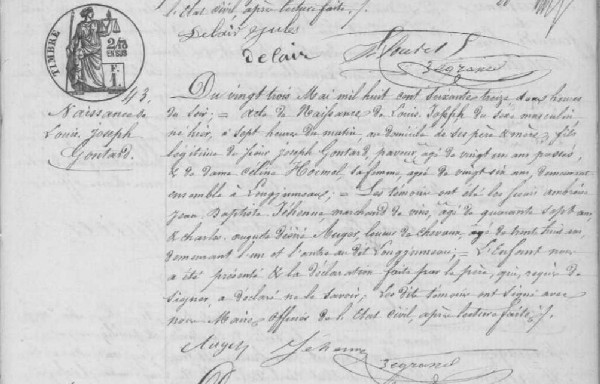 l'Etat civil, après lecture faite./.
Delair Jules
delair
TIMBRE
2/10 EN SUS
F. 1
43.
Naissance de
Louis, Joseph
Gontard.
Du vingt trois Mai mil huit cent soixante treize deux heures
du soir; = Acte de Naissance de Louis Joseph du sexe masculin
né hier, à sept heures du matin au domicile de ses père & mère; fils
légitime de sieur joseph Gontard, paveur, agé de vingt six ans passés,
& de dame Céline Hormel sa femme, agé de vingt six ans, demeurant
ensemble à Longjumeau; = Les témoins ont été les sieurs
jean Baptiste Jéhenne marchand de vins, âgé de quarante sept ans
& charles auguste désiré Auger, loueur de chevaux, âgé de trente trois ans,
demeurant l'un et l'autre au dit Longjumeau; = L'Enfant nous
a été présenté & la déclaration faite par le père, qui, requis de
signer, a déclaré ne le savoir, Les dits témoins ont signé avec
nous Maire, Officier de l'Etat Civil, après lecture faite./.
Auger Jehenne
Legrand